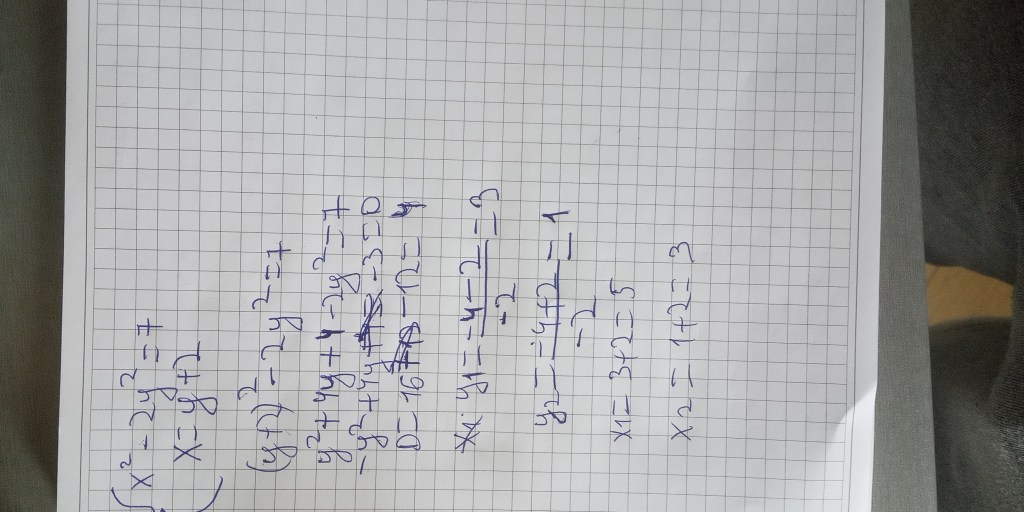 x² - 2y² = 7
x = y + 2
(y+2)² - 2y² = 7
y² + 4y + 4 - 2y² = 7
-y² + 4y - 3 = 0
D = 16 - 12 = 4
y1 = (-4 - 2)/-2 = 3
y2 = (-4 + 2)/-2 = 1
x1 = 3 + 2 = 5
x2 = 1 + 2 = 3